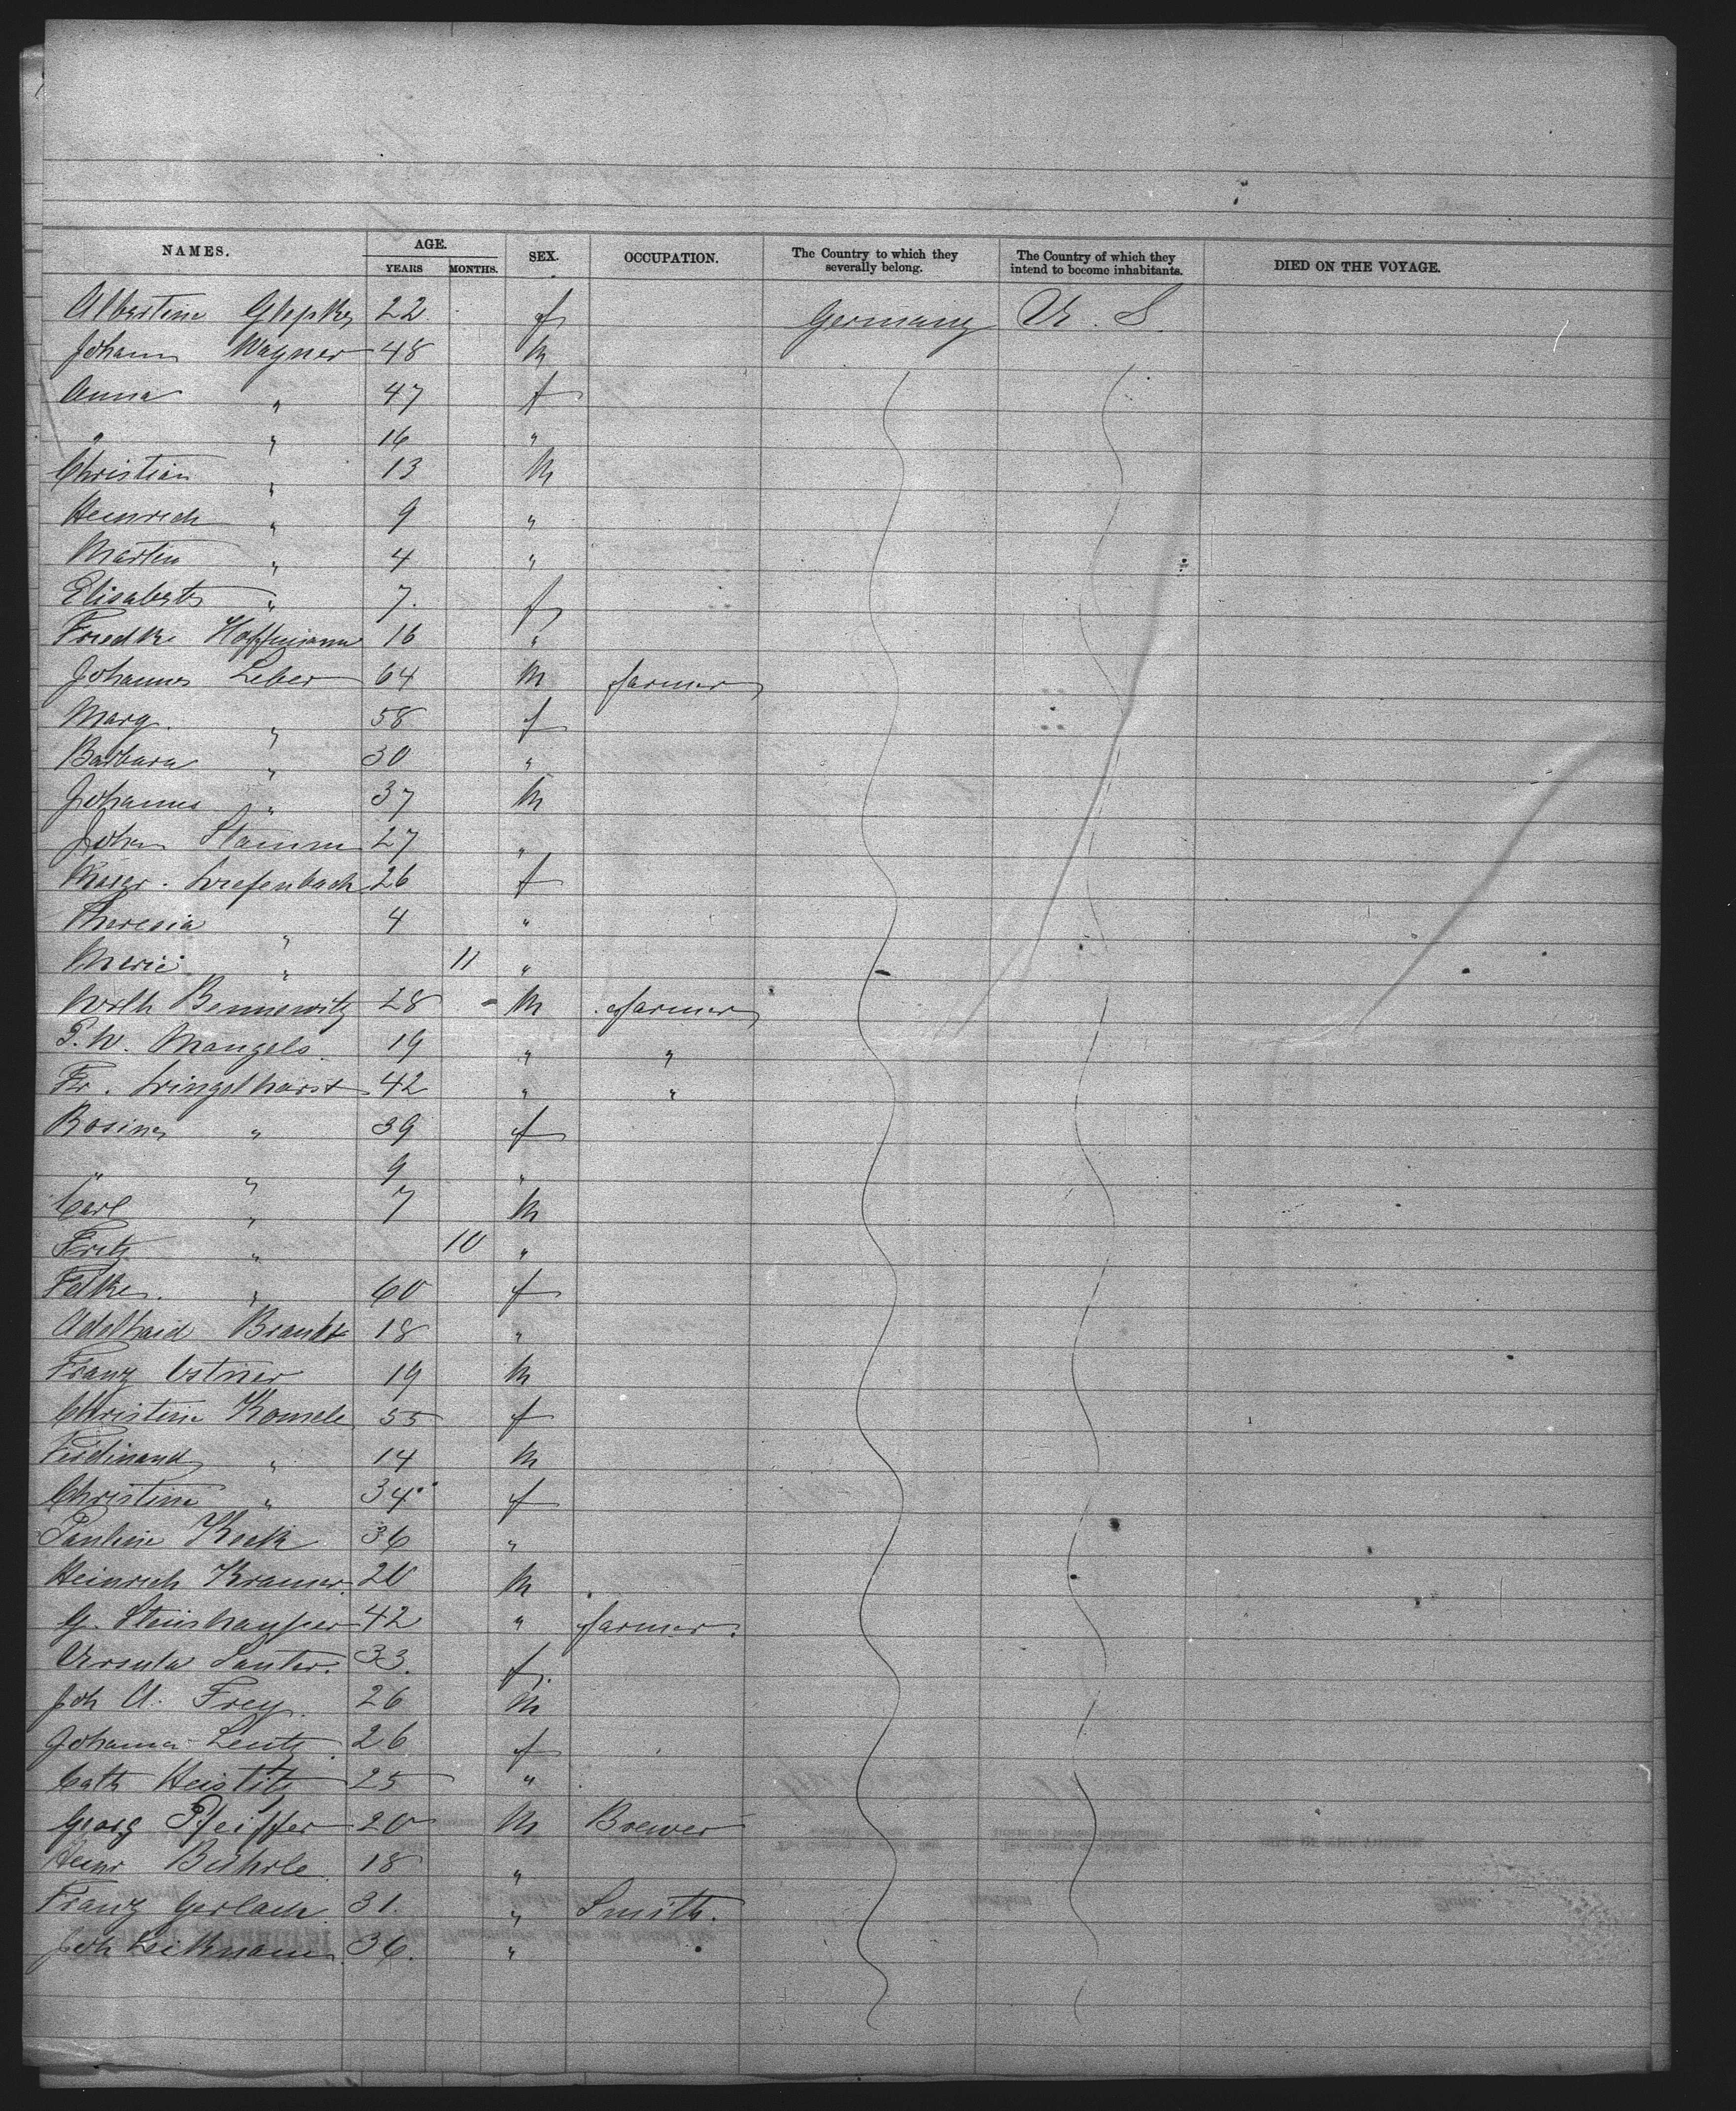 NAMES. AGE. SEX. OCCUPATION. The Country to which they severally belong. The Country of which they intend to become inhabitants. DIED ON THE VOYAGE.
YEARS MONTHS.
Albertine 22 f Germany U. S.
Johann Wagner 48 M
Anna " 47 f
" " 16 "
Christian " 13 M
Heinrich " 9 "
Martin " 4 "
Elisabeth " 7. f
Friedke Hoffmann 16 "
Johannes Leber 64 M farmer
Marg. " 58 f
Barbara " 30 "
Johannes " 37 M
Johan Stamm 27 "
Margr. Diefenbach 26 f
Theresia " 4 "
Marie " 11 "
Wilh Bennewitz 28 - M farmer
P. W. Mangels. 19 " "
Fr. 42 " "
Rosina " 39 f
" " 9 "
Carl " 7 M
Fritz " 10 "
" 60 f
Adelhaid Brandt 18 "
Franz Ostner 19 M
Christine 55 f
Ferdinand " 14 M
Christine " 34 f
Pauline Keck 36 "
Heinrich Kramer. 20 M
G. Steinhauser 42 " farmer.
Ursula Sauter. 33. f.
Joh A. Frey. 26 M
Johanna Lentz 26 f
Cath 25 "
Georg Pfeiffer 20 M Brewer
Heinr Buhrle 18 "
Franz Gerlach. 31. " Smith.
Joh 36. "